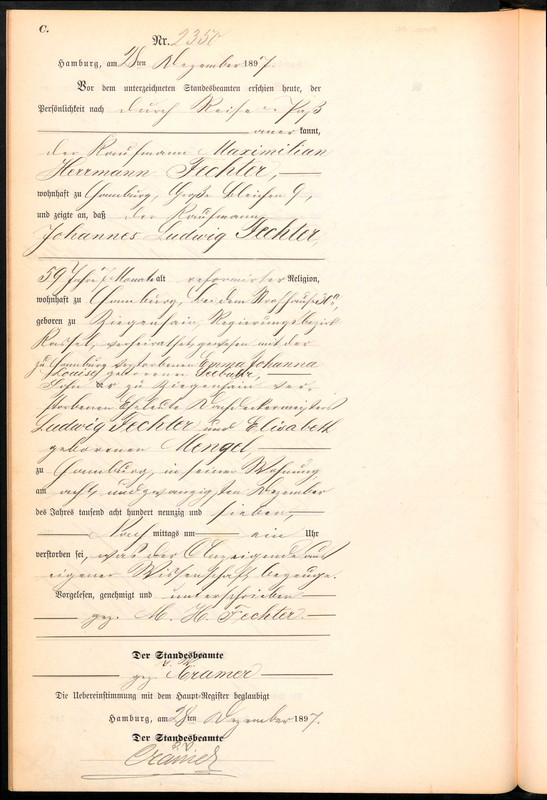 C.
Nr. 2350
Hamburg, am 28ten Dezember 1897.
Vor dem unterzeichneten Standesbeamten erschien heute, der
Persönlichkeit nach durch Reise-Paß
anerkannt,
der Kaufmann Maximilian
Herrmann Fechter,
wohnhaft zu Hamburg, Große Bleichen 9,
und zeigte an, daß der Kaufmann
Johannes Ludwig Fechter,
59 Jahre 7 Monate alt reformirter Religion,
wohnhaft zu Hamburg, bei dem Strohhause
geboren zu Ziegenhain, Regierungsbezirk
Kassel, verheirathet gewesen mit der
zu Hamburg verstorbenen Emma Johanna
Louise geborenen
Sohn der zu Ziegenhain ver-
storbenen Eheleute Dachdeckermeister
Ludwig Fechter und Elisabeth
geborenen Mengel,
zu Hamburg, in seiner Wohnung
am acht und zwanzigsten Dezember
des Jahres tausend acht hundert neunzig und sieben,
Nach mittags um ein Uhr
verstorben sei, was der Anzeigende aus
eigener Wissenschaft bezeuge.
Vorgelesen, genehmigt und unterschrieben
gez. M. H. Fechter.
Der Standesbeamte
gez. Kramer
Die Uebereinstimmung mit dem Haupt-Register beglaubigt
Hamburg, am 28ten Dezember 1897.
Der Standesbeamte
Kramer